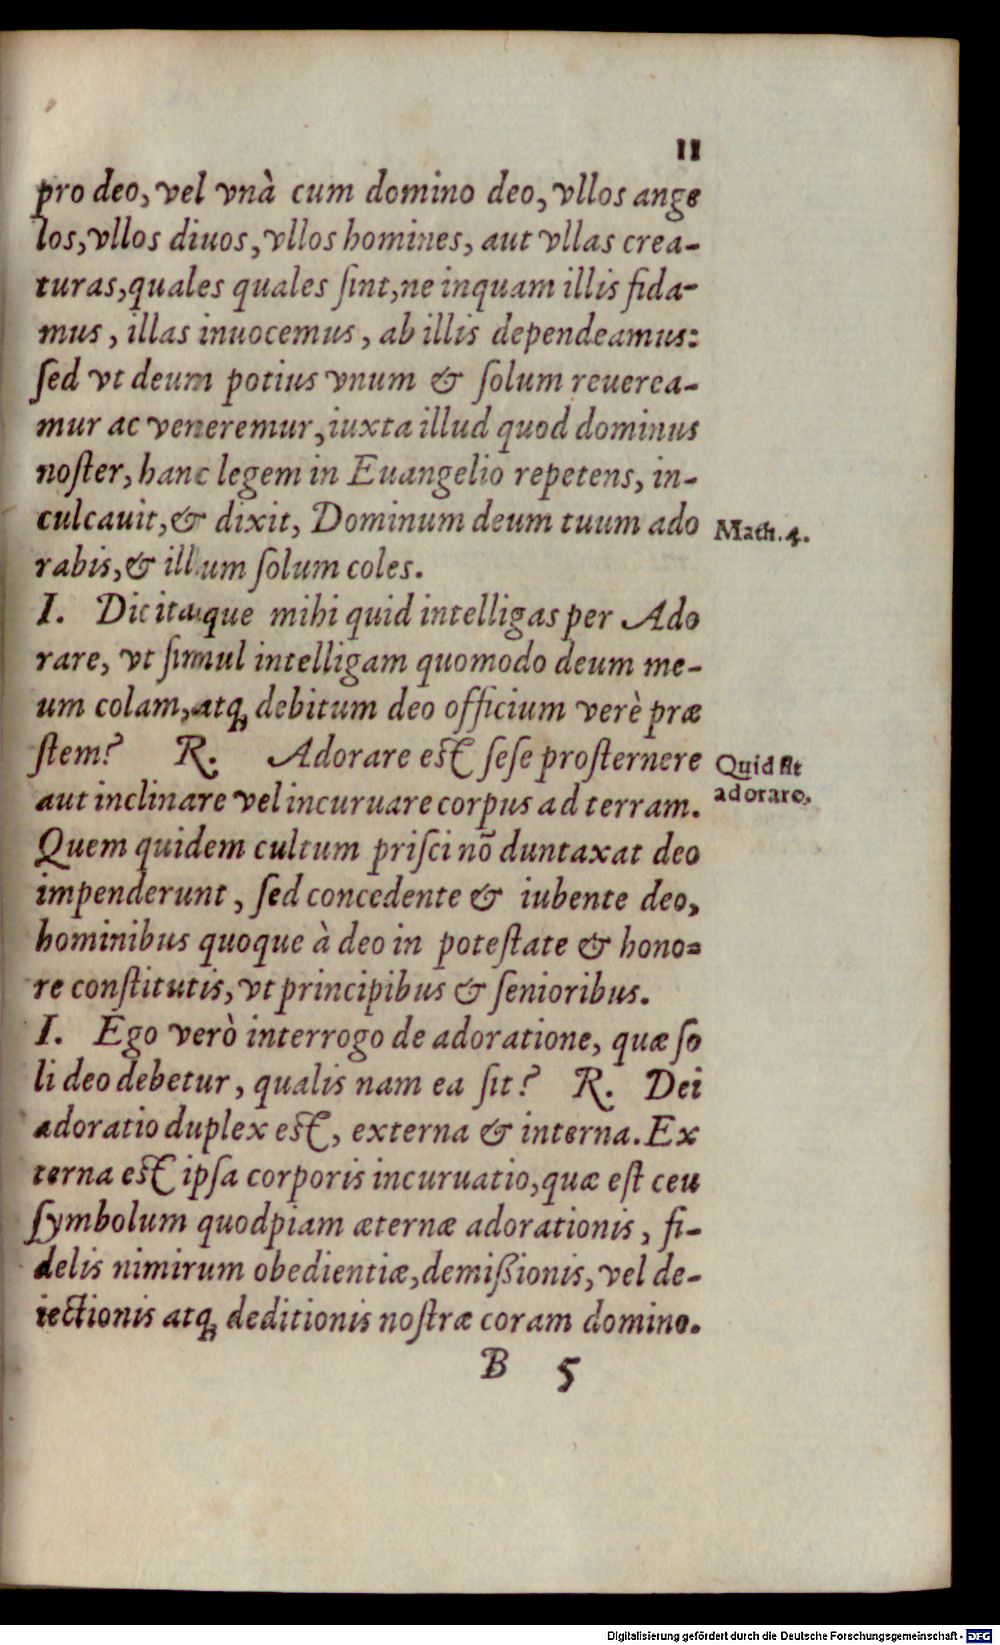 11
pro deo, vel vnà cum domino deo, vllos ange
los, vllos diuos, vllos homines, aut vllas crea-
turas, quales quales ſint, ne inquam illis fida-
mus, illas inuocemus, ab illis dependeamus:
ſed vt deum potius vnum & ſolum reuerea-
mur ac veneremur, iuxta illud quod dominus
noſter, hanc legem in Euangelio repetens, in-
culcauit, & dixit, Dominum deum tuum ado
Math. 4.
rabis, & illum ſolum coles.
I. Dic itaque mihi quid intelligas per Ado
rare, vt ſimul intelligam quomodo deum me-
um colam, atq; debitum deo officium verè præ
ſtem? R. Adorare eſt ſeſe proſternere
Quid ſit
aut inclinare vel incuruare corpus ad terram.
adorare.
Quem quidem cultum priſci nõ duntaxat deo
impenderunt, ſed concedente & iubente deo,
hominibus quoque à deo in poteſtate & hono-
re conſtitutis, vt principibus & ſenioribus.
I. Ego verò interrogo de adoratione, quæ ſo
li deo debetur, qualis nam ea ſit? R. Dei
adoratio duplex eſt, externa & interna. Ex
terna eſt ipſa corporis incuruatio, quæ eſt ceu
ſymbolum quodpiam æternæ adorationis, fi-
delis nimirum obedientiæ, demißionis, vel de-
iectionis atq; deditionis noſtræ coram domino.
B 5
Digitalisierung gefördert durch die Deutsche Forschungsgemeinschaft - DFG